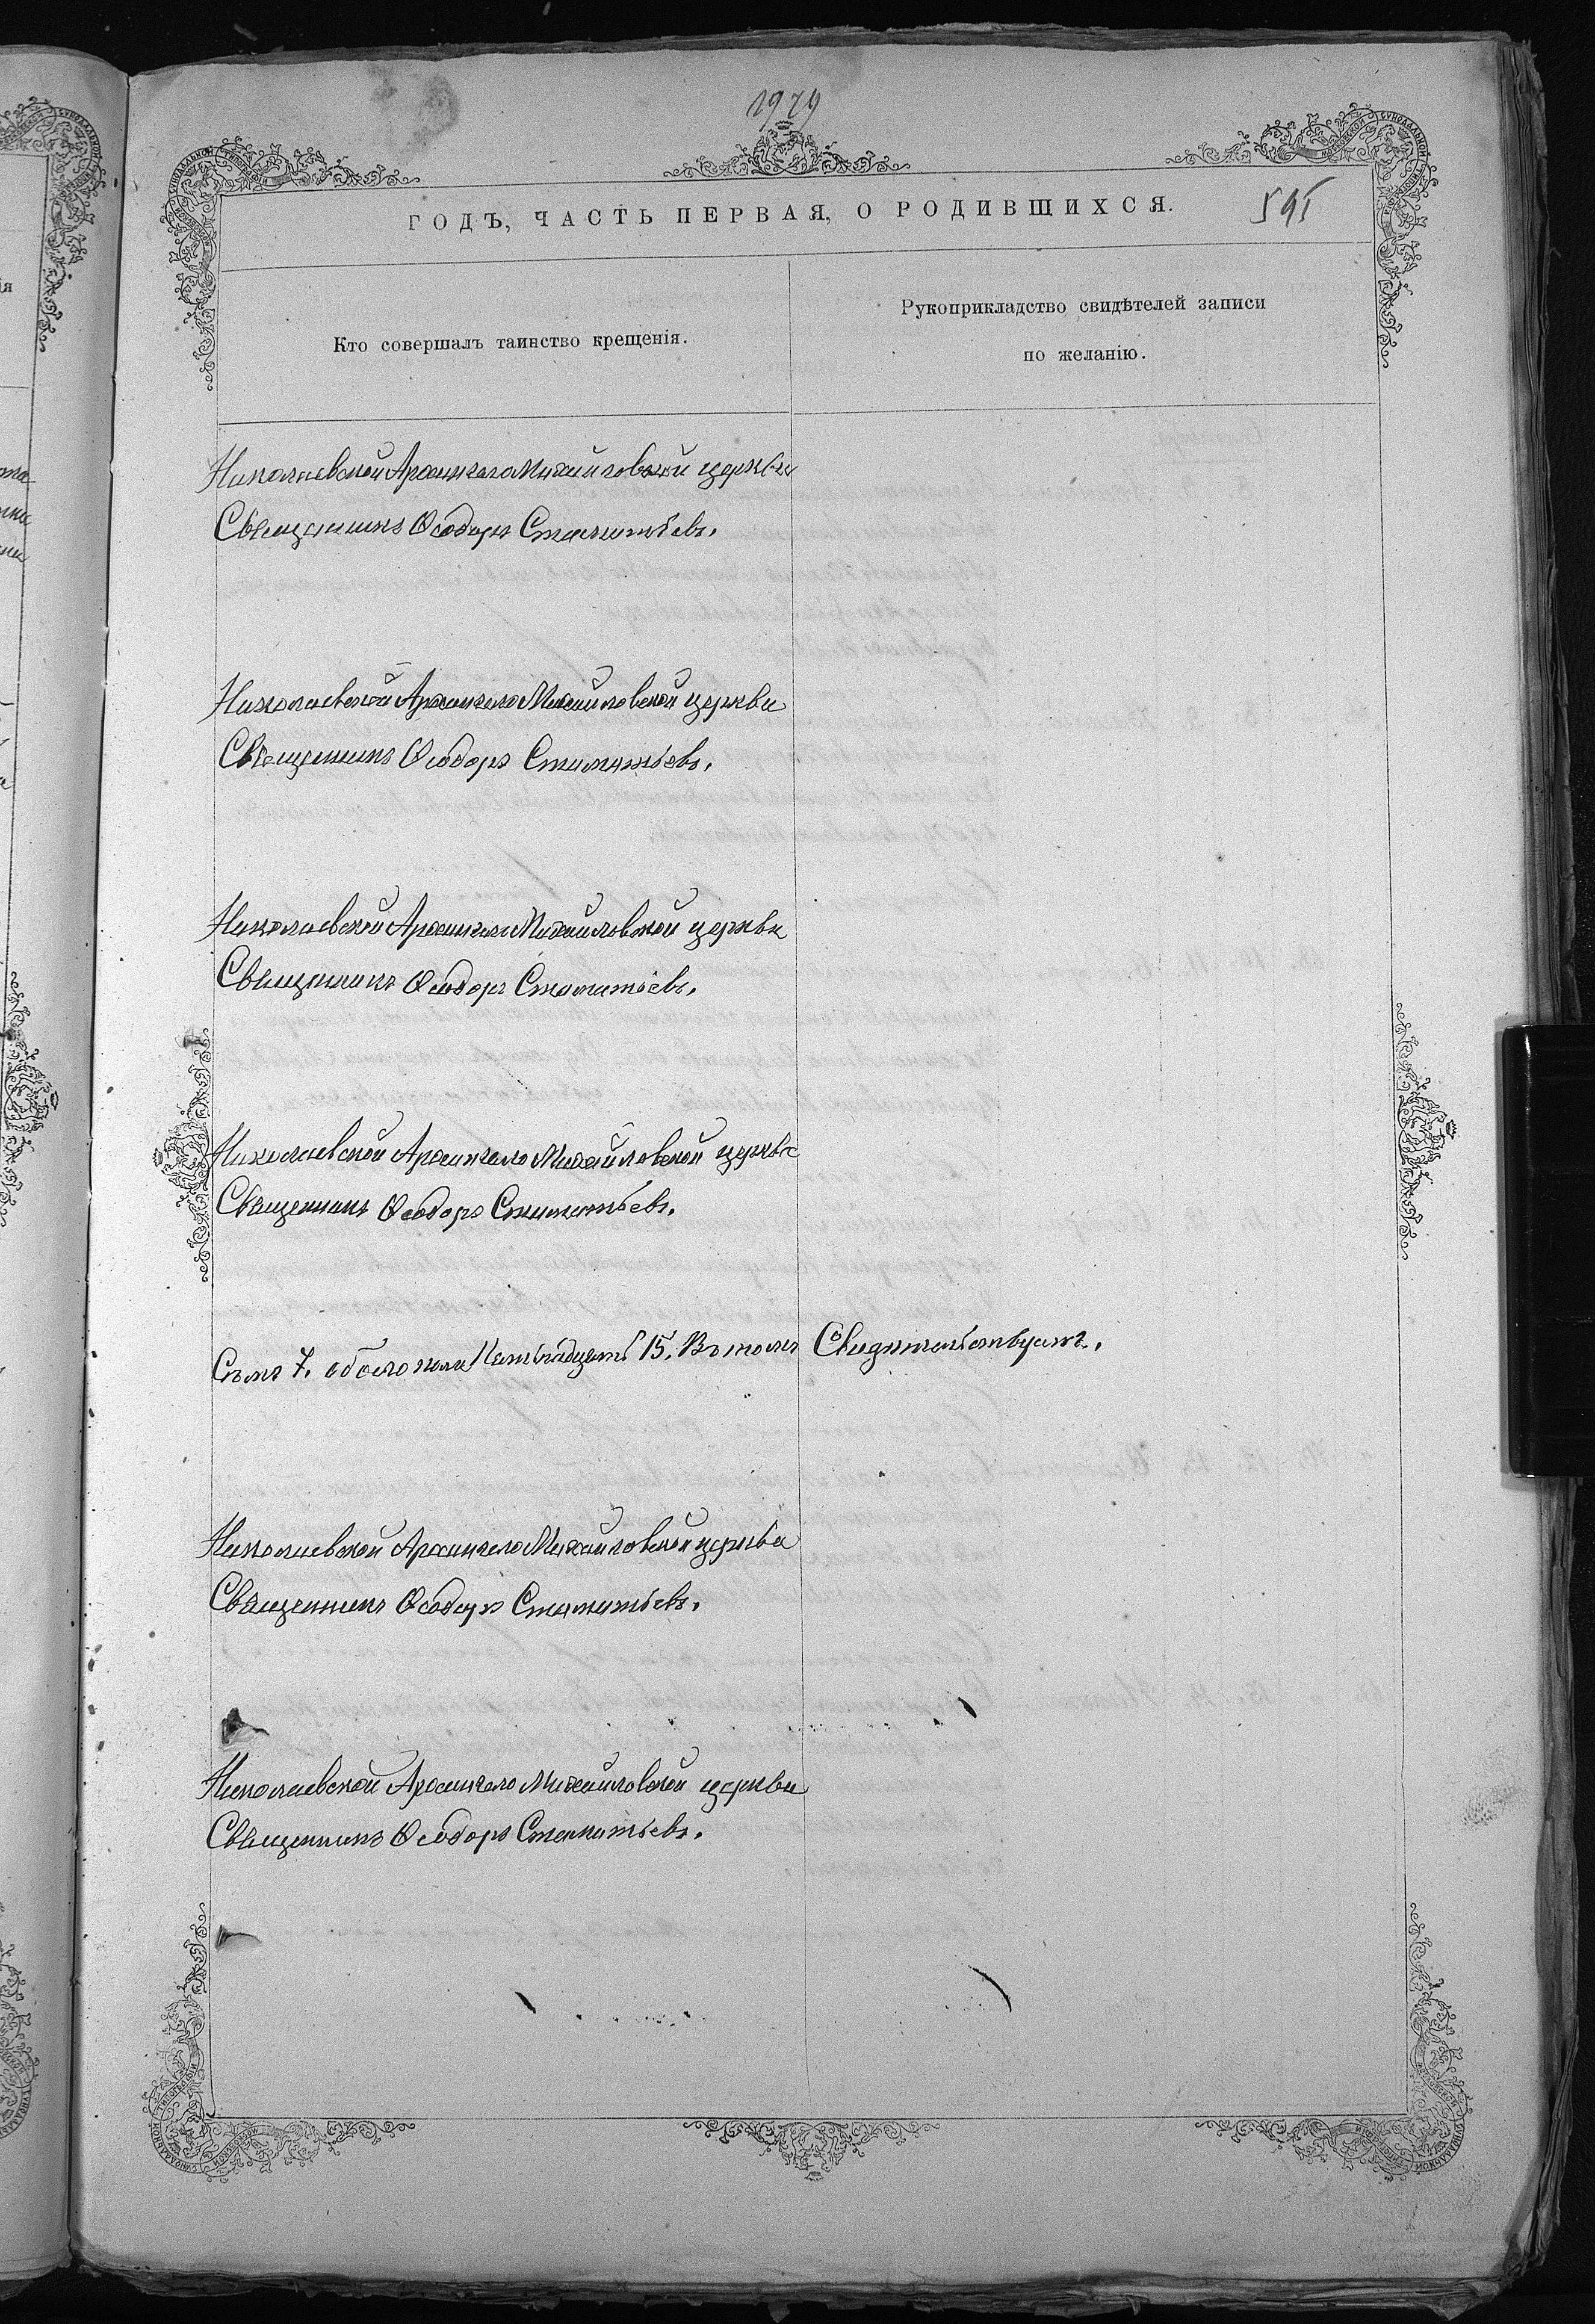 1979
ГОДЪ, ЧАСТЬ ПЕРВАЯ, О РОДИВШИХСЯ.
595
Кто совершалъ таинство крещенія.
Рукоприкладство свидѣтелей записи
по желанію.
Николаевской Архангело Михайловской церкви
Священникъ Ѳеодоръ Стаматьевъ.
Николаевской Архангело Михайловской церкви
Священникъ Ѳеодоръ Стаматьевъ.
Николаевской Архангело Михайловской церкви
Священникъ Ѳеодоръ Стаматьевъ.
Николаевской Архангело Михайловской церкви
Священникъ Ѳеодоръ Стаматьевъ.
Семь 7. обоего пола Пятнадцать 15. Въ томъ Свидѣтельствуемъ.
Николаевской Архангело Михайловской церкви
Священникъ Ѳеодоръ Стаматьевъ.
Николаевской Архангело Михайловской церкви
Священникъ Ѳеодоръ Стаматьевъ.